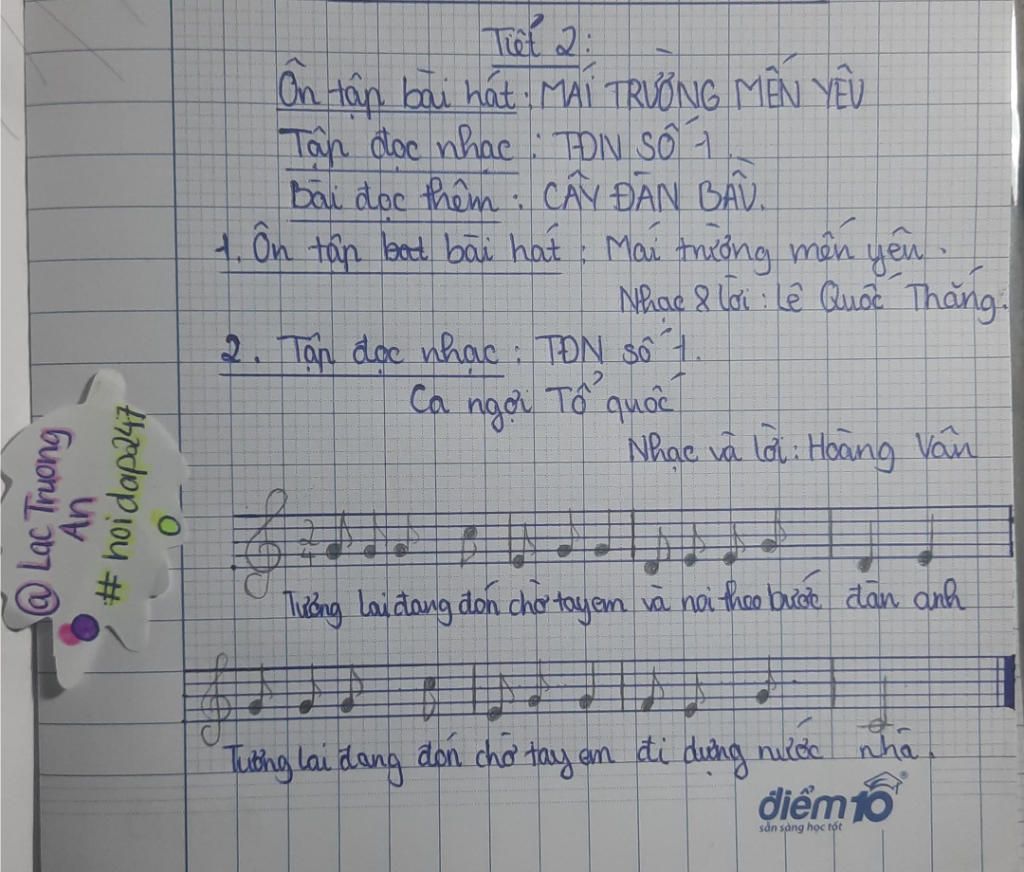 Tiết 2:
Ôn tập bài hát: MÁI TRƯỜNG MẾN YÊU
Tập đọc nhạc: TĐN SỐ 1.
Bài đọc thêm: CÂY ĐÀN BẦU.
1. Ôn tập bat bài hát: Mái trường mến yêu.
Nhạc & lời: Lê Quốc Thắng.
2. Tập đọc nhạc: TĐN số 1.
Ca ngợi Tổ quốc
Nhạc và lời: Hoàng Vân
@ Lạc Trương An
# hoidap247
2
4
Tương lai đang đón chờ tay em và noi theo bước đàn anh
Tương lai đang đón chờ tay em đi dựng nước nhà.
điểm10
sẵn sàng học tốt